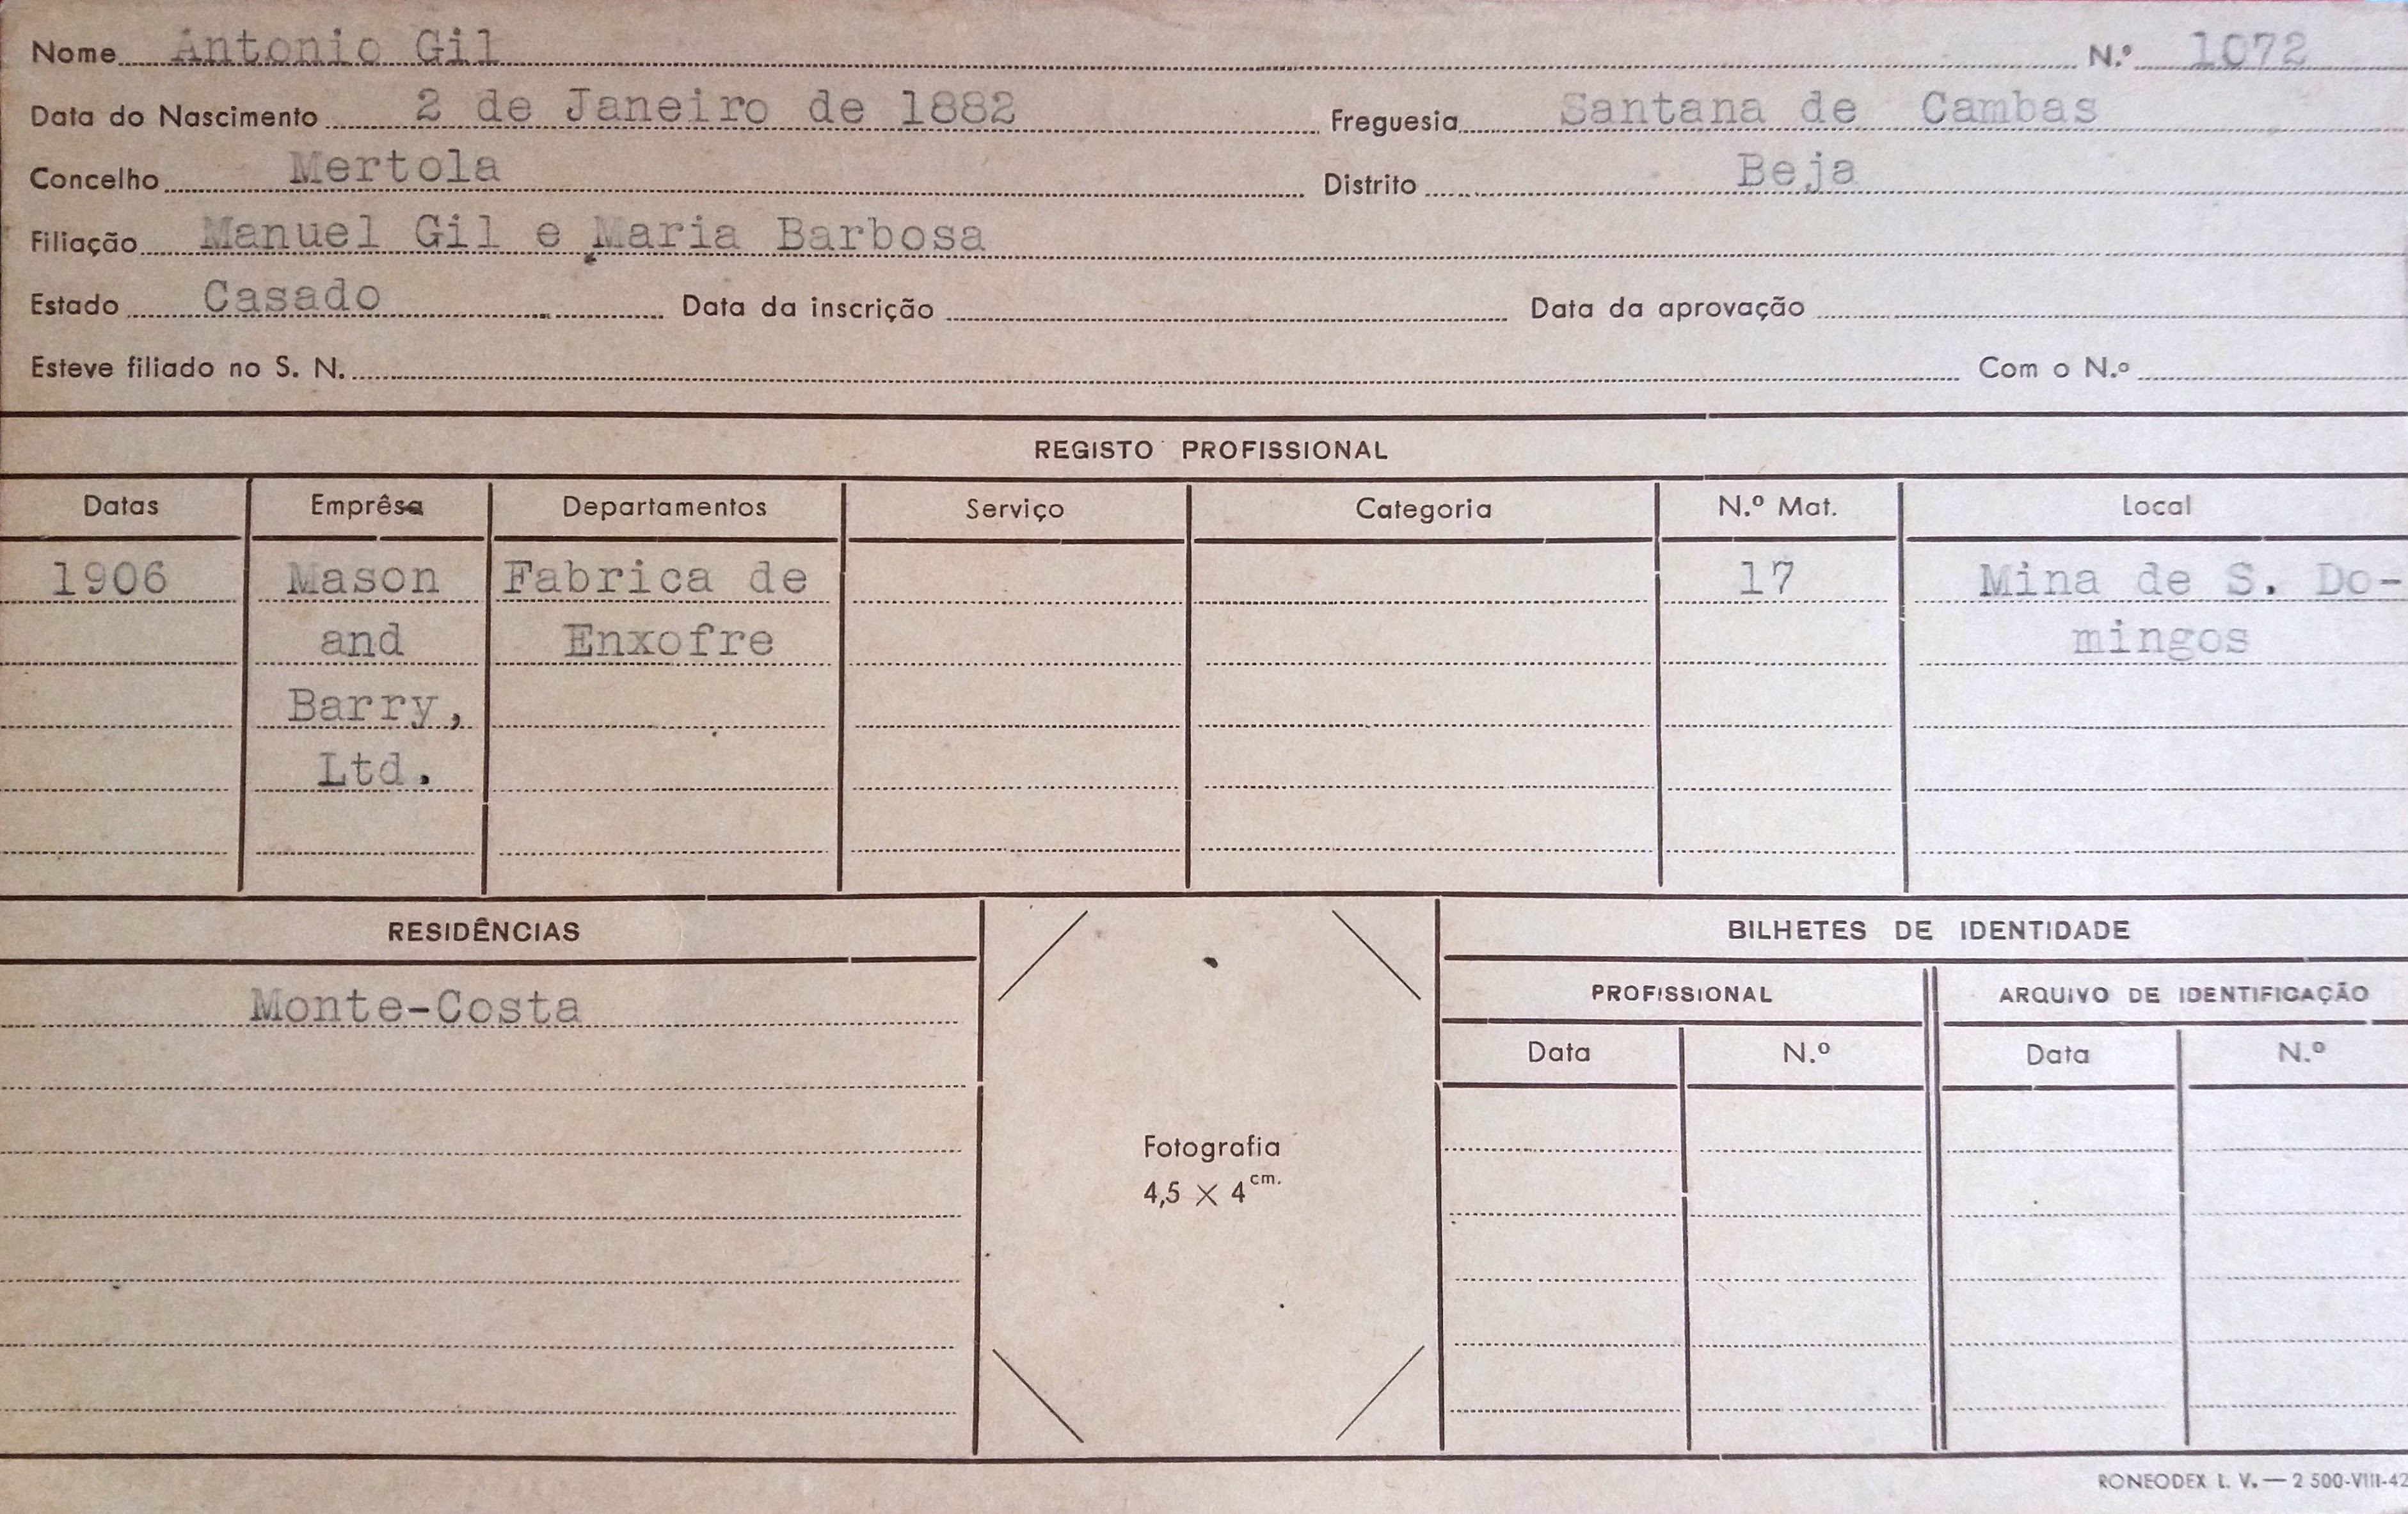 Nome Antonio Gil N.º 1072
Data do Nascimento 2 de Janeiro de 1882 Freguesia Santana de Cambas
Concelho Mertola Distrito Beja
Filiação Manuel Gil e Maria Barbosa
Estado Casado Data da inscrição Data da aprovação
Esteve filiado no S. N. Com o N.º
REGISTO PROFISSIONAL
Datas Emprêsa Departamentos Serviço Categoria N.º Mat. Local
1906 Mason Fabrica de 17 Mina de S. Do-
and Enxofre mingos
Barry,
Ltd.
RESIDÊNCIAS BILHETES DE IDENTIDADE
PROFISSIONAL ARQUIVO DE IDENTIFICAÇÃO
Monte-Costa
Data N.º Data N.º
Fotografia
4,5 × 4 cm.
RONEODEX L. V. — 2 500-VIII-42